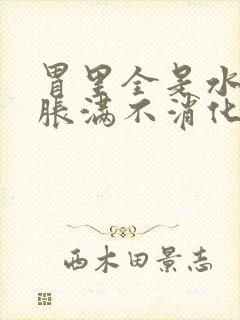 胃里全是水
胀满不消化
西木田景志